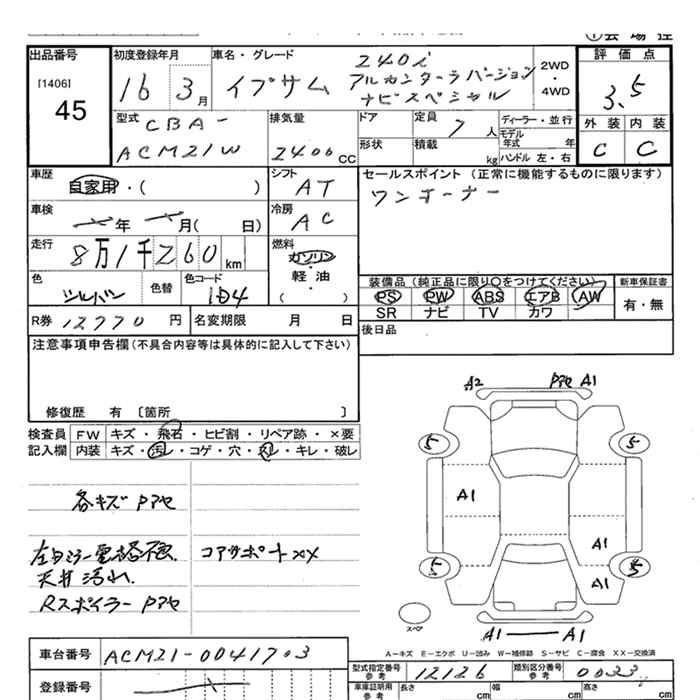 出品番号 初度登録年月 車名・グレード 評価点
[1406]
45
16 3月 イプサム 240i
アルカンターラバージョン
ナビスペシャル
2WD
・
4WD
3.5
型式 CBA-
ACM21W
排気量
2400 CC
ドア 定員 7 人 ディーラー・並行
形状 積載 kg モデル年式 年
ハンドル 左・右
外装 内装
C C
車歴 自家用・( )
シフト AT
セールスポイント (正常に機能するものに限ります)
ワンオーナー
車検 年 月( 日)
冷房 AC
走行 8万1千260 km
燃料 ガソリン
・
軽・油
・
( )
色 シルバー 色替 色コード 1D4
装備品 (純正品に限り○をつけてください) 新車保証書
PS PW ABS エアB AW 有・無
SR ナビ TV カワ
R券 12770 円 名変期限 月 日
後日品
注意事項申告欄 (不具合内容等は具体的に記入して下さい)
修復歴 有 〔箇所 〕
検査員 FW キズ・飛石・ヒビ割・リペア跡・×要
記入欄 内装 キズ・汚レ・コゲ・穴・スレ・キレ・破レ
各キズ Pアセ
コアサポートXX
天井汚れ.
Rスポイラー Pアセ
A2 Pアセ A1
5 5
A1
A1
5 A1 5
スペア
A1 A1
A-キズ E-エクボ U-凹み W-補修跡 S-サビ C-腐食 XX-交換済
車台番号 ACM21-0041703
型式指定番号 参考 12126 類別区分番号 参考 0033
登録番号
車庫証明用 参考 長さ cm 幅 cm 高さ cm